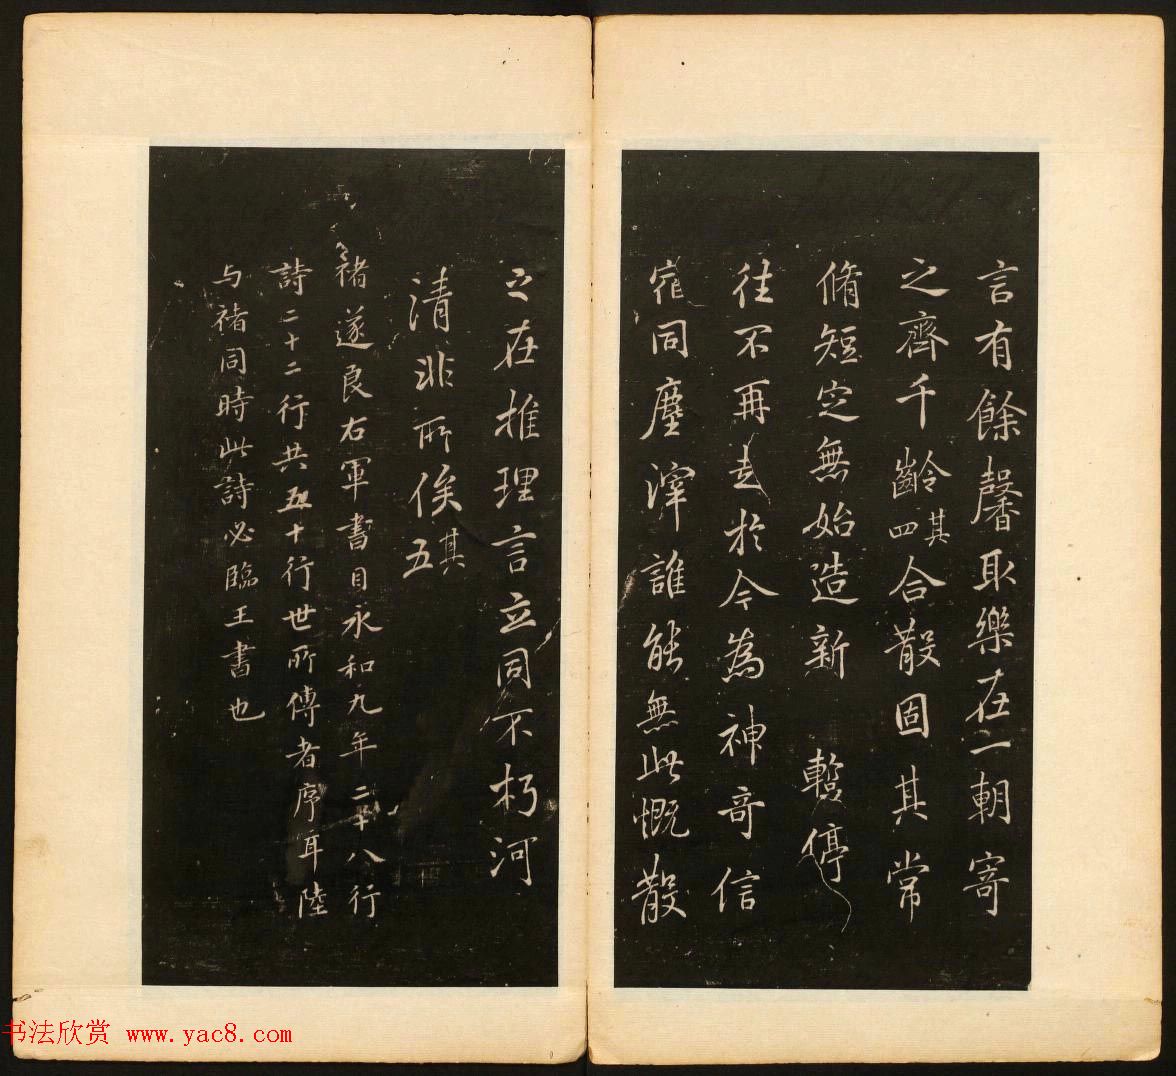 言有餘馨取樂在一朝寄
之齊千齡其四合散固其常
脩短定無始造新暫停
往不再起於今為神奇信
宿同塵滓誰能無此慨散
之在推理言立同不朽河
清非所俟其五
褚遂良右軍書目永和九年二十八行
詩二十二行共五十行世所傳者序耳陸
与褚同時此詩必臨王書也
书法欣赏 www.yac8.com